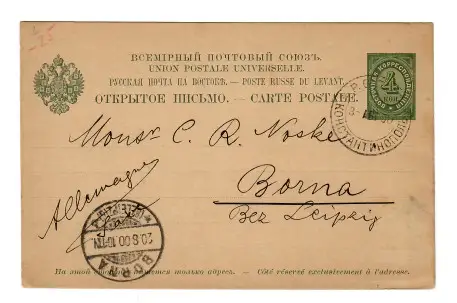 -25
ВСЕМІРНЫЙ ПОЧТОВЫЙ СОЮЗЪ.
UNION POSTALE UNIVERSELLE.
РУССКАЯ ПОЧТА НА ВОСТОКѢ. — POSTE RUSSE DU LEVANT.
ОТКРЫТОЕ ПИСЬМО. — CARTE POSTALE.
ВОСТОЧНАЯ КОРРЕСПОНДЕНЦІЯ
4
КОП.
КОНСТАНТИНОПОЛЬ
Monsr C. R. Noske
Allemagne
Borna
Bez Leipzig
BORNA
20.8.00.10-11V.
На этой сторонѣ пишется только адресъ. — Côté réservé exclusivement à l'adresse.